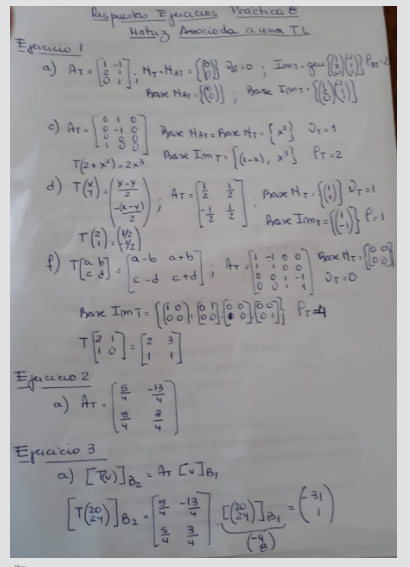 Respuestas Ejercicios Práctica 8
Matriz Asociada a una T.L.
Ejercicio 1
a) A_T = [1 -1; 2 1; 0 1]; N_T = N_{AT} = {(0 0)} ν_T = 0; Im_T = gen
Base N_{AT} = {(0 0)}; Base Im_T =
c) A_T = [0 1 0; 0 -1 0; 0 0 0; 1 0 0] Base N_{AT} = Base N_T = {x²} ν_T = 1
T(2+x²) = 2x³ Base Im_T = {(1-x), x³} ρ_T = 2
d) T(x y) = ; A_T = ; Base N_T = {(1 1)} ν_T = 1
Base Im_T = {(1 -1)} ρ = 1
T(2 1) = (1/2 -1/2)
f) T[a b; c d] = [a-b a+b; c-d c+d]; A_T = [1 -1 0 0; 1 1 0 0; 0 0 1 -1; 0 0 1 1] Base N_T = {0 0; 0 0}
ν_T = 0
Base Im_T = {(1 0; 0 0), (0 1; 0 0), (0 0; 1 0), (0 0; 0 1)} ρ_T = 4
T[2 1; 1 0] = [2 3; 1 1]
Ejercicio 2
a) A_T = [5/4 -13/4; 5/4 3/4]
Ejercicio 3
a) [T(v)]_{B2} = A_T [v]_{B1}
[T(20 24)]_{B2} = [5/4 -13/4; 5/4 3/4] . [(20 24)]_{B1} = (-31 1)
(-4 8)